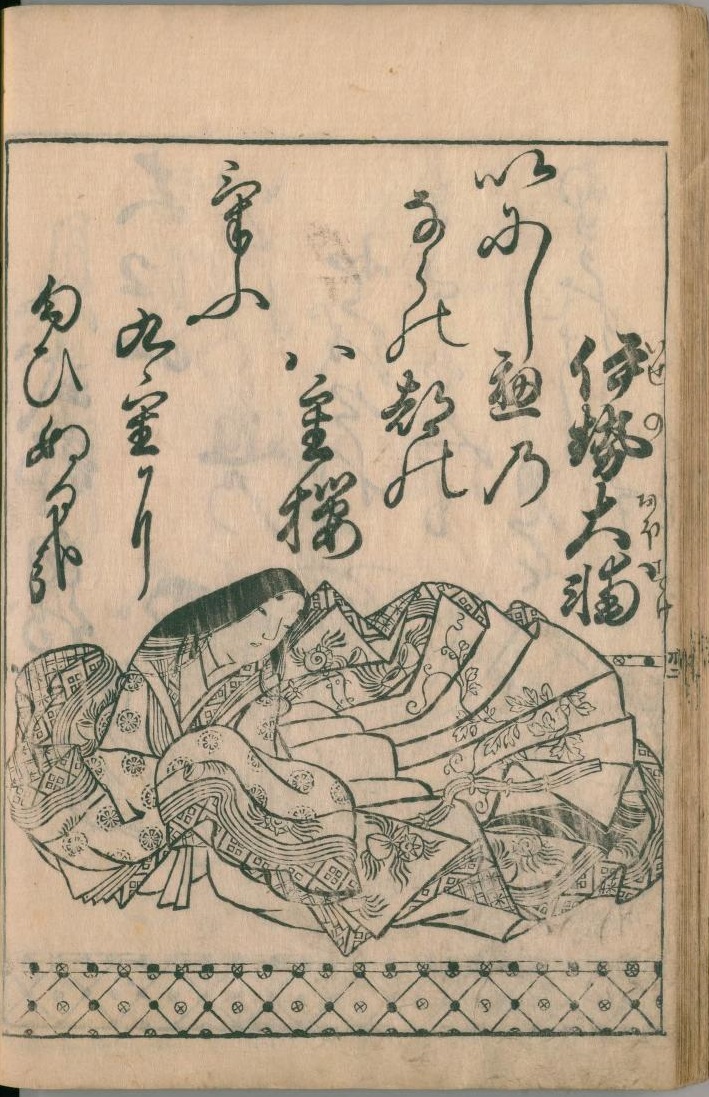 いせの
伊勢大輔
いにしへの
ならの都の
八重櫻
けふ
九重に
匂ひぬる哉